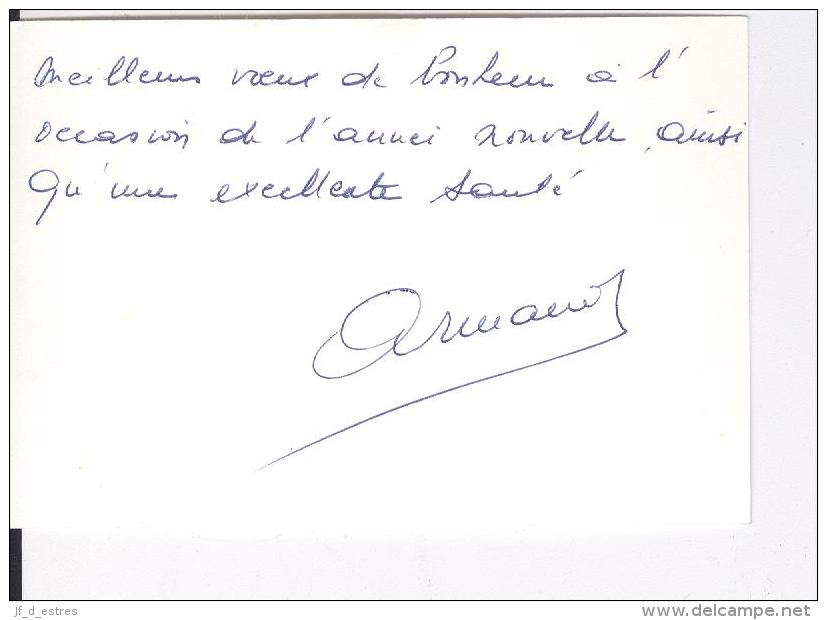 Meilleurs vœux de bonheur à l'
occasion de l'année nouvelle, ainsi
qu'une excellente santé
Armand
jf_d_estres
www.delcampe.net